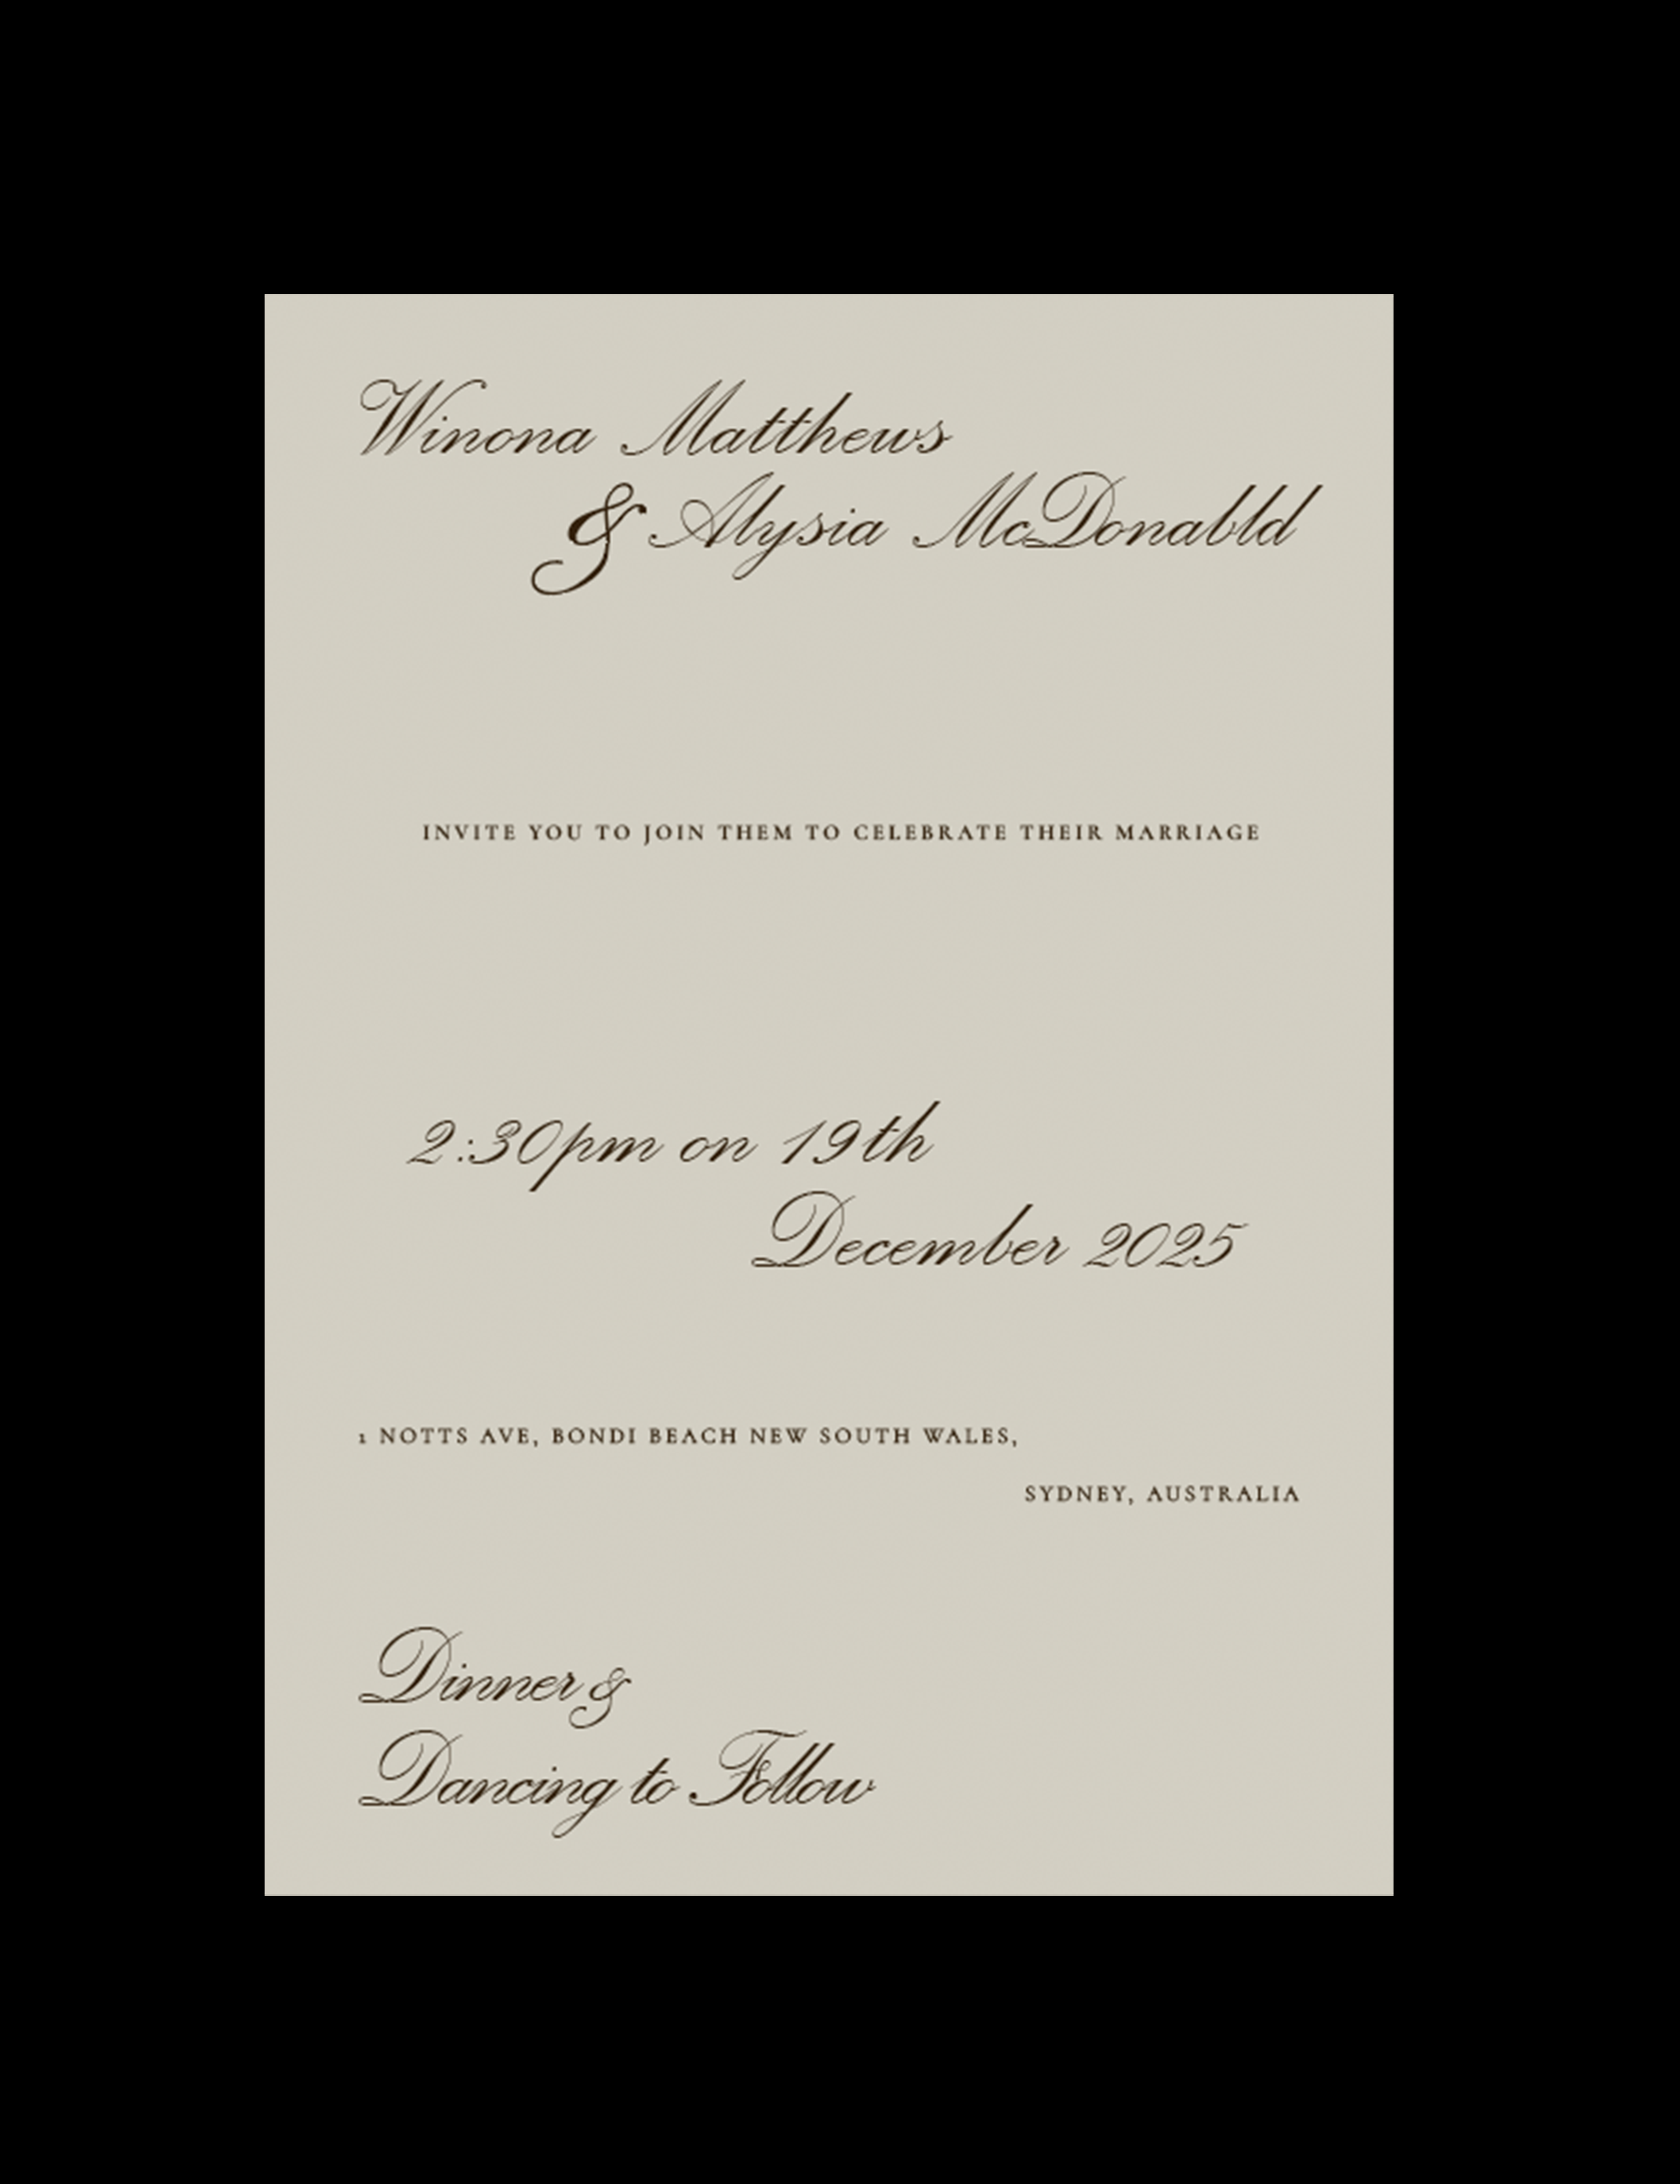 Winona Matthews
& Alysia McDonabld
INVITE YOU TO JOIN THEM TO CELEBRATE THEIR MARRIAGE
2:30pm on 19th
December 2025
1 NOTTS AVE, BONDI BEACH NEW SOUTH WALES,
SYDNEY, AUSTRALIA
Dinner &
Dancing to Follow